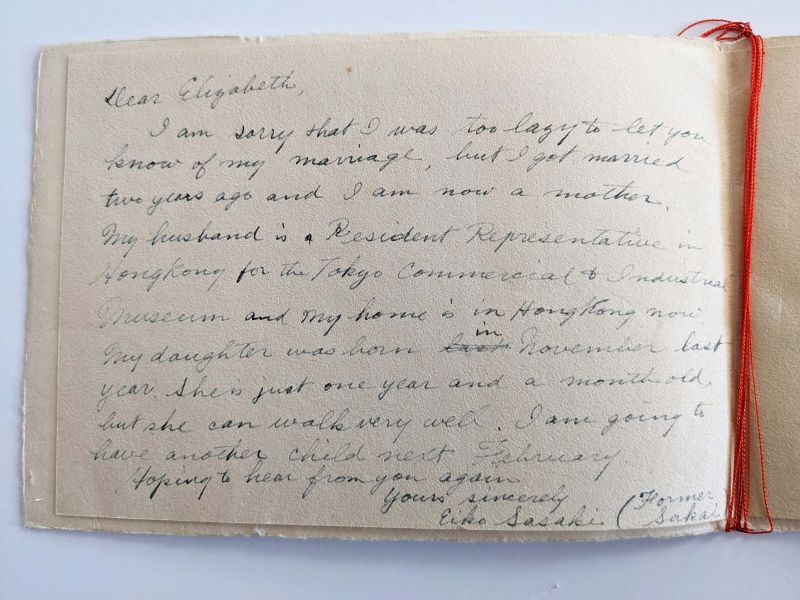 Dear Elizabeth,
I am sorry that I was too lazy to let you
know of my marriage, but I got married
two years ago and I am now a mother.
My husband is a Resident Representative in
HongKong for the Tokyo Commercial & Industrial
Museum and my home is in HongKong now
My daughter was born last in November last
year. She is just one year and a month old,
but she can walk very well. I am going to
have another child next February.
Hoping to hear from you again
Yours sincerely
Eiko Sasaki (Former
Sakai